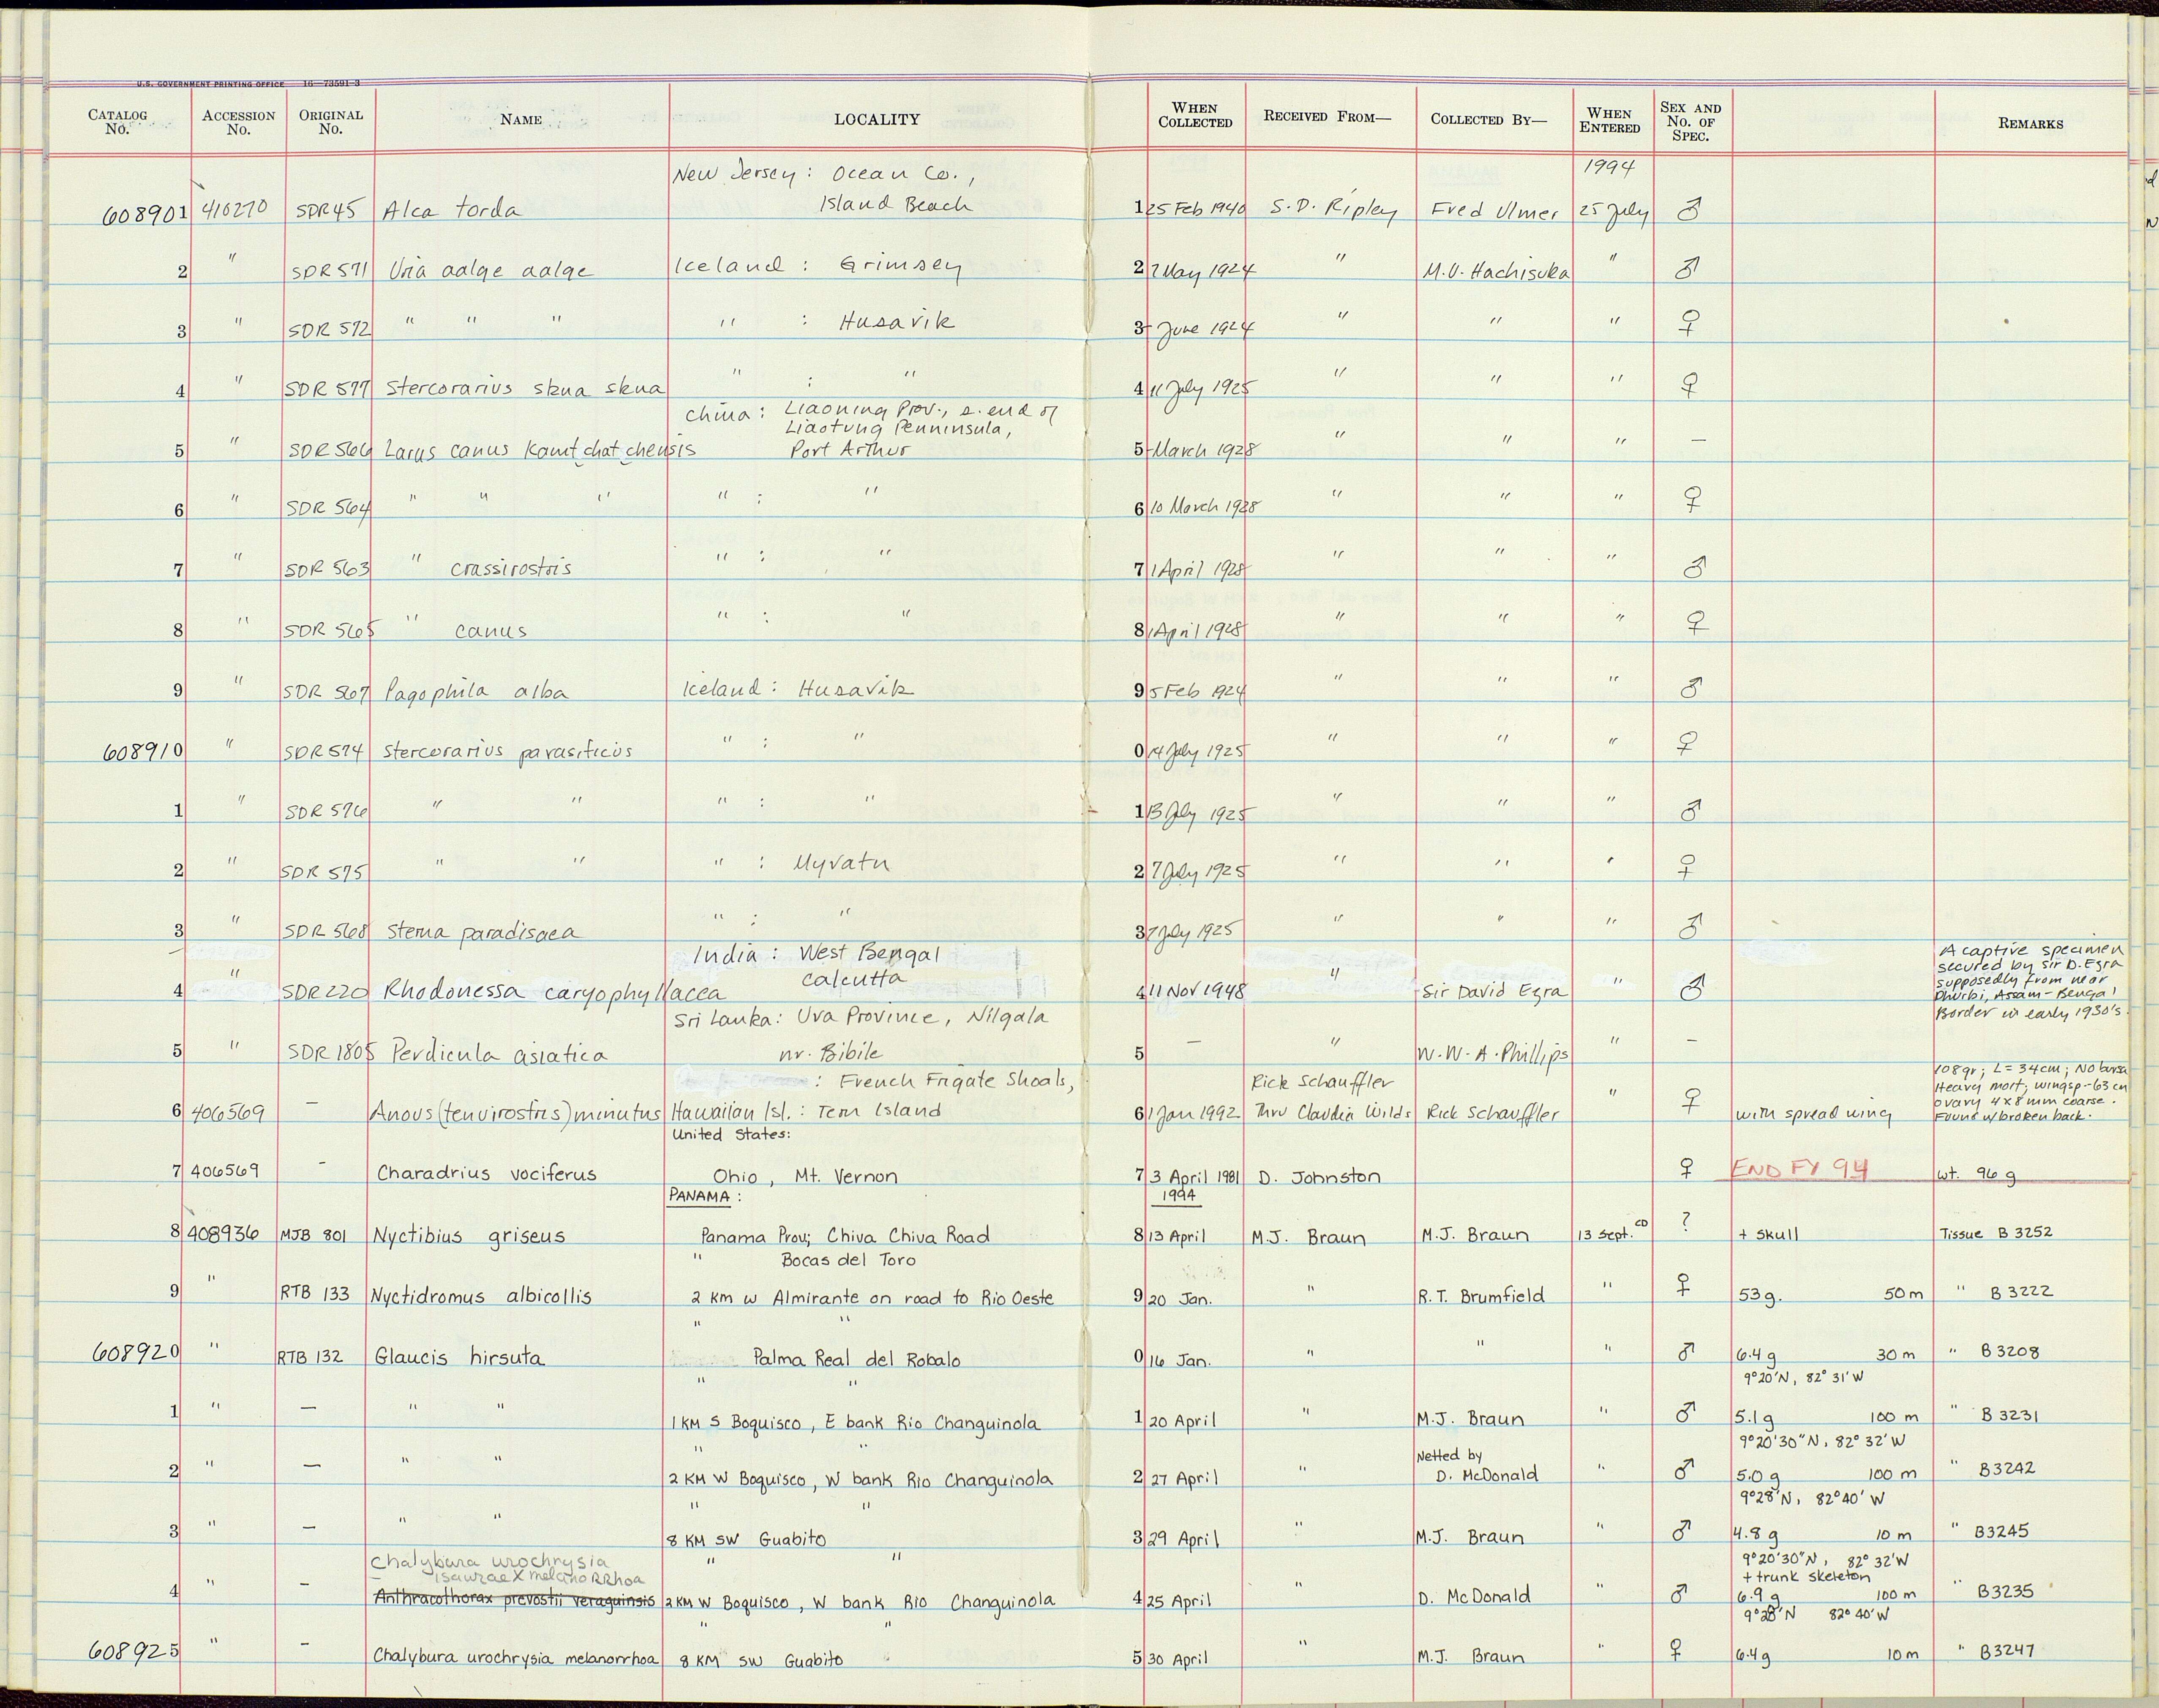 U.S. GOVERNMENT PRINTING OFFICE 16—73591-3
CATALOG No. ACCESSION No. ORIGINAL No. NAME LOCALITY WHEN COLLECTED RECEIVED FROM— COLLECTED BY— WHEN ENTERED SEX AND No. OF SPEC. REMARKS
New Jersey: Ocean Co., 1994
608901 410270 SDR45 Alca torda Island Beach 1 25 Feb 1940 S.D. Ripley Fred Ulmer 25 July ♂
2 " SDR 571 Uria aalge aalge Iceland : Grimsey 2 7 May 1924 " M.U. Hachisuka " ♂
3 " SDR 572 " " " " : Husavik 3 - June 1924 " " " ♀
4 " SDR 577 Stercorarius skua skua " : " 4 11 July 1925 " " " ♀
China: Liaoning Prov., s. end of
Liaotung Penninsula,
5 " SDR 566 Larus canus Kamtchatchensis Port Arthur 5 - March 1928 " " " —
6 " SDR 564 " " " " : " 6 10 March 1928 " " " ♀
7 " SDR 563 " crassirostris " : " 7 1 April 1928 " " " ♂
8 " SDR 565 " canus " : " 8 1 April 1928 " " " ♀
9 " SDR 567 Pagophila alba Iceland: Husavik 9 5 Feb 1924 " " " ♂
608910 " SDR 574 Stercorarius parasiticus " : " 0 14 July 1925 " " " ♀
1 " SDR 576 " " " : " 1 13 July 1925 " " " ♂
2 " SDR 575 " " " : Myvatn 2 7 July 1925 " " " ♀
3 " SDR 568 Sterna paradisaea " : " 3 7 July 1925 " " " ♂
India: West Bengal A captive specimen
Calcutta secured by Sir D. Ezra
supposedly from near
4 " SDR 220 Rhodonessa caryophyllacea 4 11 Nov 1948 " Sir David Ezra " ♂ Dhurbi, Assam-Bengal
Sri Lanka: Uva Province, Nilgala Border in early 1930's.
5 " SDR 1805 Perdicula asiatica nr. Bibile 5 — " W.W.A. Phillips " —
: French Frigate Shoals, Rick Schauffler 108gr; L=34cm; No bursa
Heavy molt; wingsp-63 cm
6 406569 — Anous (tenuirostris) minutus Hawaiian Isl.: Tern Island 6 1 Jan 1992 Thru Claudia Wilds Rick Schauffler " ♀ with spread wing ovary 4x8mm coarse.
Found w/broken back.
United States:
7 406569 - Charadrius vociferus Ohio, Mt. Vernon 7 3 April 1981 D. Johnston ♀ END FY 94 wt. 96 g
PANAMA: 1994
8 408936 MJB 801 Nyctibius griseus Panama Prov; Chiva Chiva Road 8 13 April M.J. Braun M.J. Braun 13 Sept. CD ? + skull Tissue B 3252
" Bocas del Toro
9 " RTB 133 Nyctidromus albicollis 2 km w Almirante on road to Rio Oeste 9 20 Jan. " R.T. Brumfield " ♀ 53g. 50 m " B 3222
" "
608920 " RTB 132 Glaucis hirsuta Palma Real del Robalo 0 16 Jan. " " " ♂ 6.4 g 30 m " B 3208
" " 9°20'N, 82° 31'W
1 " — " " 1 KM S Boquisco, E bank Rio Changuinola 1 20 April " M.J. Braun " ♂ 5.1g 100 m " B 3231
" " Netted by 9°20'30"N, 82° 32'W
2 " — " " 2 KM W Boquisco, W bank Rio Changuinola 2 27 April " D. McDonald " ♂ 5.0 g 100 m " B3242
" " 9°28'N, 82°40' W
3 " — " " 8 KM SW Guabito 3 29 April " M.J. Braun " ♂ 4.8 g 10 m " B3245
Chalybura urochrysia " " 9°20'30"N, 82° 32'W
isaurae X melanorrhoa + trunk skeleton
4 " - Anthracothorax prevostii veraguinsis 2 KM W Boquisco, W bank Rio Changuinola 4 25 April " D. McDonald " ♂ 6.9 g 100 m " B3235
" " 9°28'N 82° 40'W
608925 " - Chalybura urochrysia melanorrhoa 8 KM SW Guabito 5 30 April " M.J. Braun " ♀ 6.4g 10 m " B3247